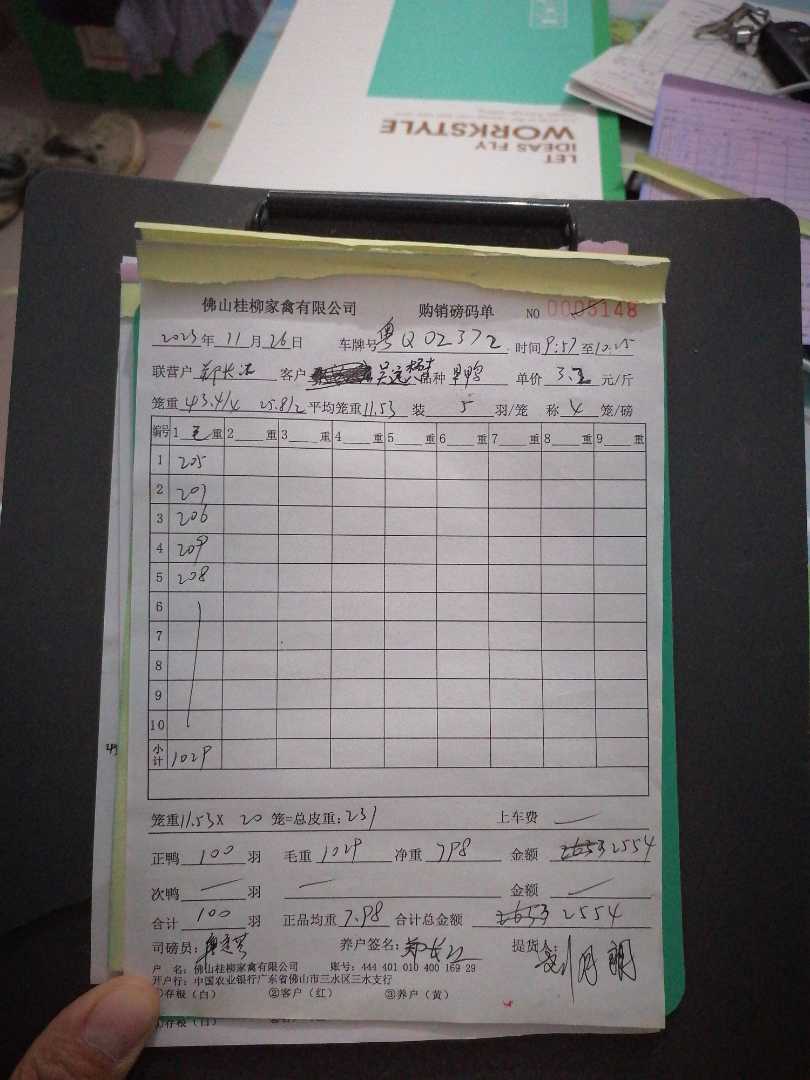 LET
IDEAS FLY
WORKSTYLE
佛山桂柳家禽有限公司 购销磅码单 NO 0005148
2023年11月26日 车牌号 粤Q02372 时间 9:57至10:25
联营户 郑长江 客户 品种 单价 3.2 元/斤
笼重 43.4/4 25.8/2 平均笼重11.53 装 5 羽/笼 称 4 笼/磅
编号 1 毛重 2 重 3 重 4 重 5 重 6 重 7 重 8 重 9 重
1 205
2 201
3 206
4 209
5 208
6
7
8
9
10
小计 1029
笼重11.53 X 20 笼=总皮重:231 上车费
正鸭 100 羽 毛重 1029 净重 798 金额 2653 2554
次鸭 羽 金额
合计 100 羽 正品均重 7.98 合计总金额 2653 2554
司磅员: 养户签名:郑长江 提货人:
户 名: 佛山桂柳家禽有限公司 账号: 444 401 010 400 169 29
开户行: 中国农业银行广东省佛山市三水区三水支行
①存根(白) ②客户(红) ③养户(黄)
①存根(白)